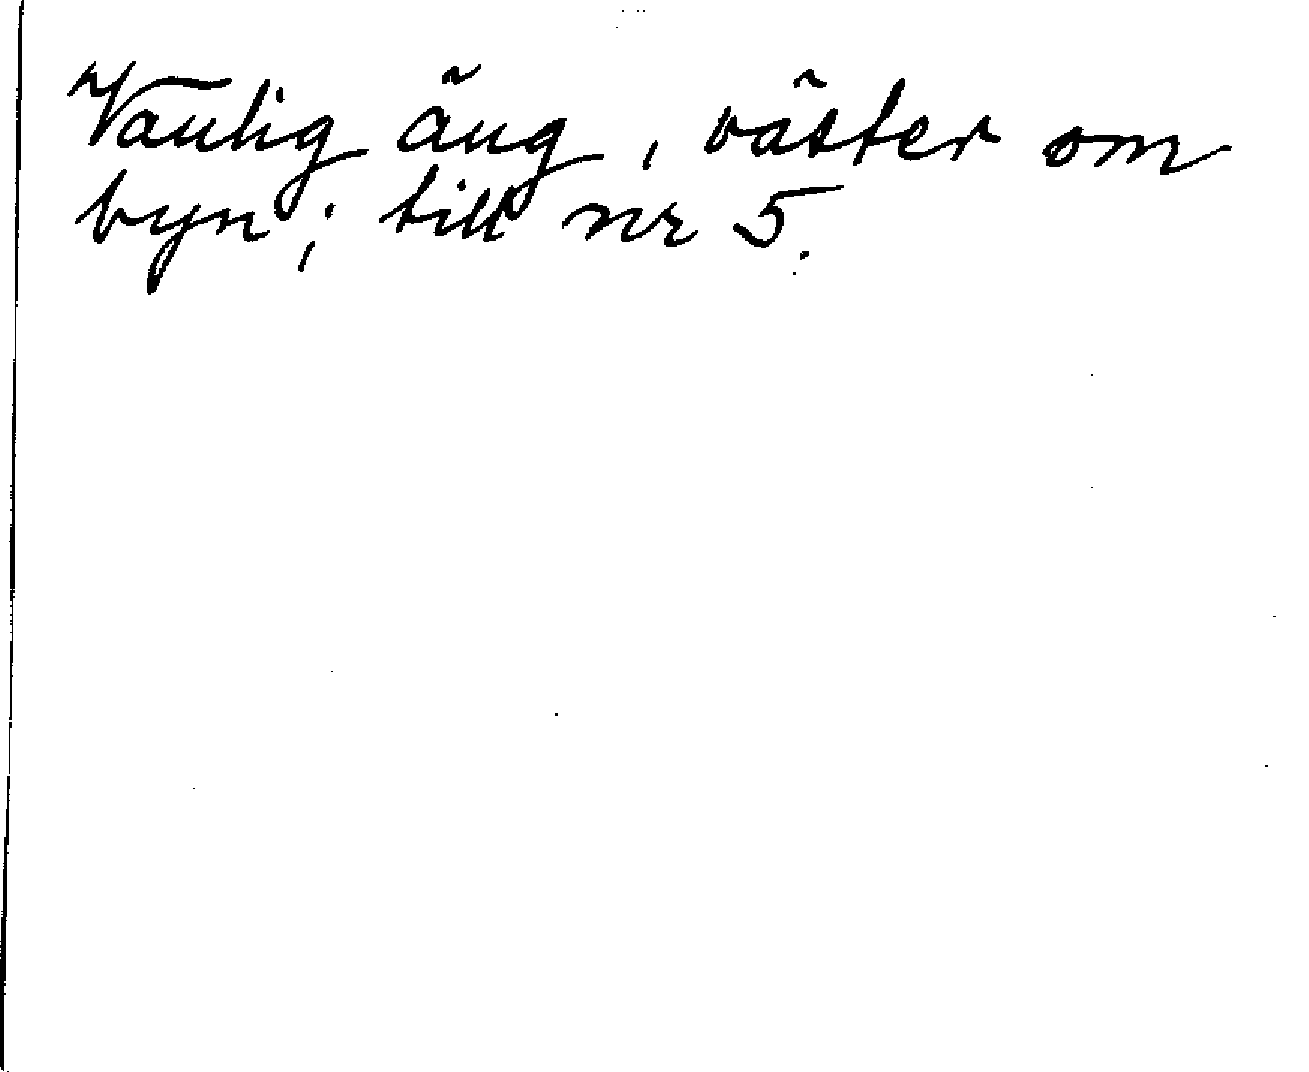 Vanlig äng, väster om
byn; till nr 5.